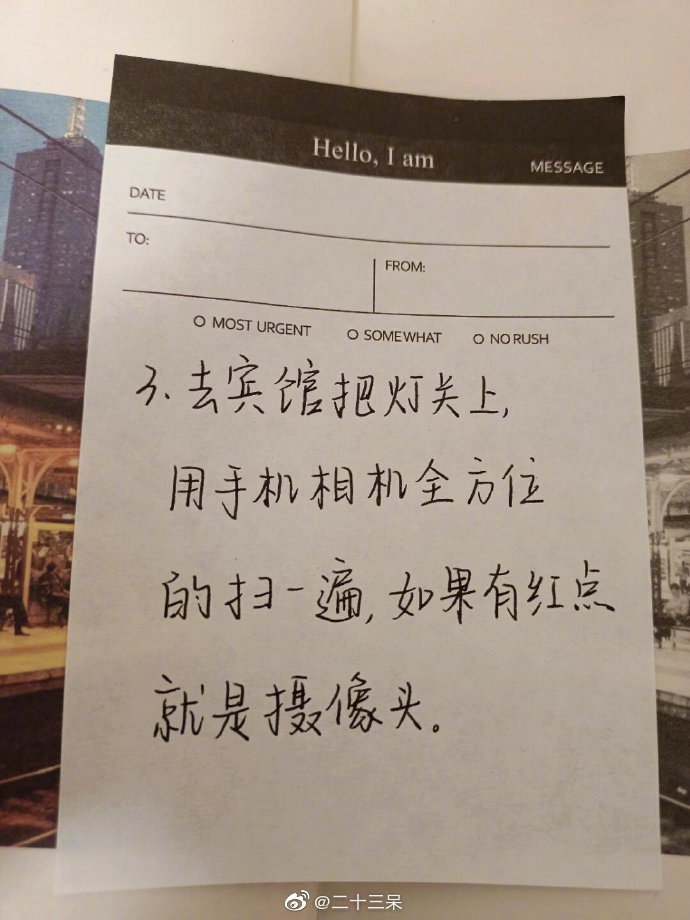 Hello, I am
MESSAGE
DATE
TO:
FROM:
O MOST URGENT O SOMEWHAT O NO RUSH
3、去宾馆把灯关上,
用手机相机全方位
的扫一遍,如果有红点
就是摄像头。
@二十三呆